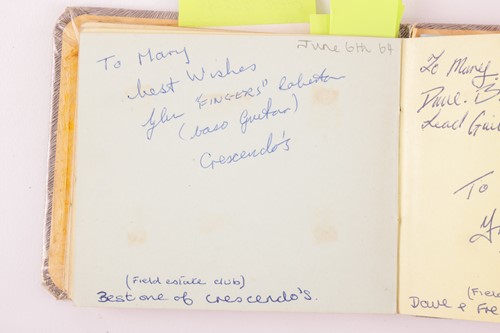 June 6th 64
To Mary
best Wishes
"FINGERS"
(bass Guitar)
Crescendo's
(Field estate club)
Best one of Crescendo's.
To Mary
Dave.
Lead
To
(Field
Dave & Fre